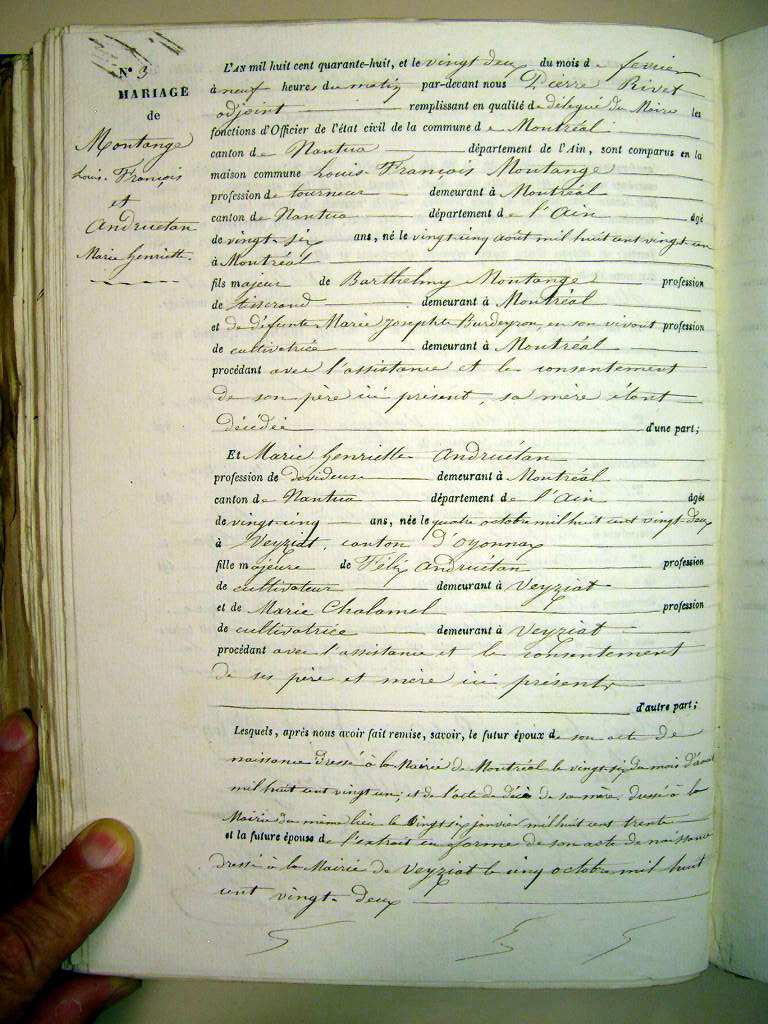 N° 3
MARIAGE
de
Montange
Louis-François
et
Andruétan
Marie henriette.
L'AN mil huit cent quarante-huit, et le vingt deux du mois de fevrier
à neuf heures du matin par-devant nous Pierre Rivet
adjoint remplissant en qualité de délégué du Maire les
fonctions d'Officier de l'état civil de la commune de Montréal
canton de Nantua département de l'Ain, sont comparus en la
maison commune Louis-François Montange
profession de tourneur demeurant à Montréal
canton de Nantua département de l'Ain âgé
de vingt-six ans, né le vingt-cinq août mil huit cent vingt-un
à Montréal
fils majeur de Barthelmy Montange profession
de tisserand demeurant à Montréal
et de défunte Marie Josephte Burdeyron, en son vivant profession
de cultivatrice demeurant à Montréal
procédant avec l'assistance et le consentement
de son père ici présent, sa mère étant
décédée d'une part;
Et Marie henriette Andruétan
profession de devideuse demeurant à Montréal
canton de Nantua département de l'Ain âgée
de vingt-cinq ans, née le quatre octobre mil huit cent vingt-deux
à Veyziat, canton D'oyonnax
fille majeure de Félix Andruétan profession
de cultivateur demeurant à Veyziat
et de Marie Chalamel profession
de cultivatrice demeurant à Veyziat
procédant avec l'assistance et le consentement
de ses père et mère ici présents
d'autre part;
Lesquels, après nous avoir fait remise, savoir, le futur époux de son acte de
naissance dressé à la Mairie de Montréal le vingt-six du mois d'août
mil huit cent vingt un; et de l'acte de décès de sa mère, dressé à la
Mairie du même lieu le vingt six janvier mil huit cent trente
et la future épouse de l'extrait en forme de son acte de naissance
dressé à la Mairie de Veyziat le cinq octobre mil huit
cent vingt-deux